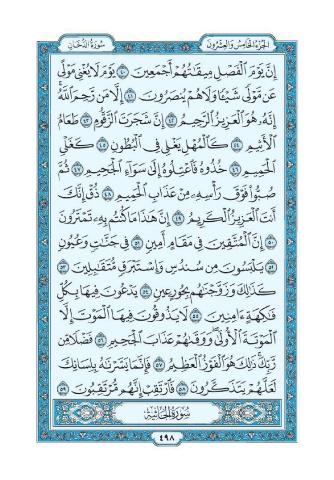 سُورَةُ الدُّخَانِ الجُزْءُ الخَامِسُ وَالعِشْرُونَ
إِنَّ يَوْمَ ٱلْفَصْلِ مِيقَٰتُهُمْ أَجْمَعِينَ ٤٠ يَوْمَ لَا يُغْنِى مَوْلًى
عَن مَّوْلًى شَيْـًٔا وَلَا هُمْ يُنصَرُونَ ٤١ إِلَّا مَن رَّحِمَ ٱللَّهُ
إِنَّهُۥ هُوَ ٱلْعَزِيزُ ٱلرَّحِيمُ ٤٢ إِنَّ شَجَرَتَ ٱلزَّقُّومِ ٤٣ طَعَامُ
ٱلْأَثِيمِ ٤٤ كَٱلْمُهْلِ يَغْلِى فِى ٱلْبُطُونِ ٤٥ كَغَلْىِ
ٱلْحَمِيمِ ٤٦ خُذُوهُ فَٱعْتِلُوهُ إِلَىٰ سَوَآءِ ٱلْجَحِيمِ ٤٧ ثُمَّ
صُبُّوا۟ فَوْقَ رَأْسِهِۦ مِنْ عَذَابِ ٱلْحَمِيمِ ٤٨ ذُقْ إِنَّكَ
أَنتَ ٱلْعَزِيزُ ٱلْكَرِيمُ ٤٩ إِنَّ هَٰذَا مَا كُنتُم بِهِۦ تَمْتَرُونَ
٥٠ إِنَّ ٱلْمُتَّقِينَ فِى مَقَامٍ أَمِينٍ ٥١ فِى جَنَّٰتٍ وَعُيُونٍ
٥٢ يَلْبَسُونَ مِن سُندُسٍ وَإِسْتَبْرَقٍ مُّتَقَٰبِلِينَ ٥٣
كَذَٰلِكَ وَزَوَّجْنَٰهُم بِحُورٍ عِينٍ ٥٤ يَدْعُونَ فِيهَا بِكُلِّ
فَٰكِهَةٍ ءَامِنِينَ ٥٥ لَا يَذُوقُونَ فِيهَا ٱلْمَوْتَ إِلَّا
ٱلْمَوْتَةَ ٱلْأُولَىٰ وَوَقَىٰهُمْ عَذَابَ ٱلْجَحِيمِ ٥٦ فَضْلًا مِّن
رَّبِّكَ ذَٰلِكَ هُوَ ٱلْفَوْزُ ٱلْعَظِيمُ ٥٧ فَإِنَّمَا يَسَّرْنَٰهُ بِلِسَانِكَ
لَعَلَّهُمْ يَتَذَكَّرُونَ ٥٨ فَٱرْتَقِبْ إِنَّهُم مُّرْتَقِبُونَ ٥٩
سُورَةُ الجَاثِيَةِ
٤٩٨